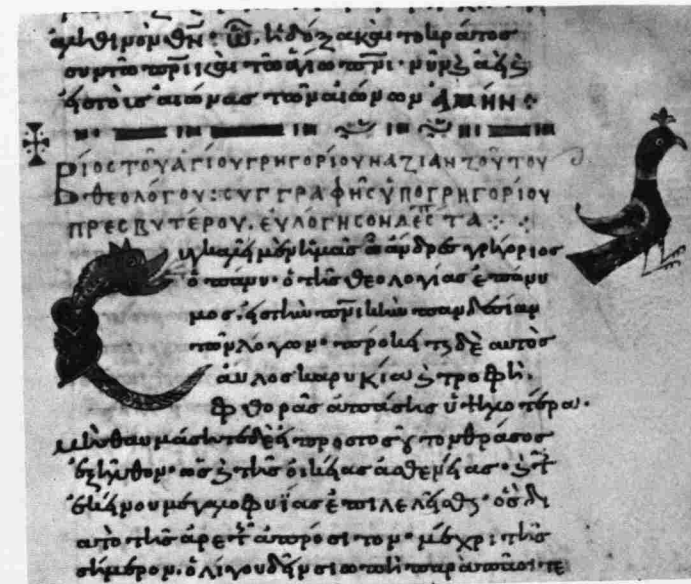 ἀληθινὸν θν· ὧ, ἡ δόξα καὶ το κράτος
συν τῶ πρι καὶ τῶ ἁγίω πνι· νῦν καὶ ἀεὶ
καὶ εἰς τοὺς αἰῶνας τῶν αἰώνων ἀμήν
ΒΙΟC ΤΟΥ ΑΓΙΟΥ ΓΡΗΓΟΡΙΟΥ ΝΑΖΙΑΝΖΟΥ ΤΟΥ
ΘΕΟΛΟΓΟΥ: CΥΓΓΡΑΦΗC ΥΠΟ ΓΡΗΓΟΡΙΟΥ
ΠΡΕCΒΥΤΕΡΟΥ. ΕΥΛΟΓΗCΟΝ ΔΕCΠΤΑ
Συγκαλεῖ μὲν ἡμᾶς ὦ ἄνδρες γρηγόριος
ὁ πάνυ· ὁ τῆς θεολογίας ἐπώνυ
μος, εἰς τὴν πνικὴν πανδεσίαν
τῶν λόγων· πρόκειται δὲ αὐτὸς
ἄυλος καρυκία καὶ τροφὴ·
φθορᾶς ἁπάσης ὑψηλοτέρα·
μὴ θαυμάσητε δὲ εἰ προς τοσοῦτον θράσος
ἐξῆλθον· ὡς καὶ τῆς οἰκείας ἀσθενείας· καὶ
ἐκείνου μεγαλοφυΐας ἐπιλελῆσθαι·
ἀπὸ τῆς ἀρετῆς μέχρι τῆς
σήμερον. ὀλίγου δεῖν σιωπῆ